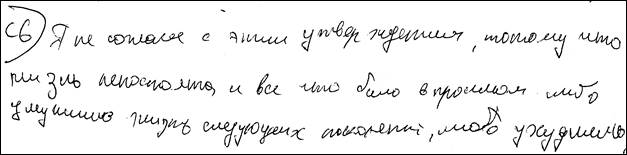 С6) Я не согласен с этим утверждением, потому что
жизнь непостоянна и все что было в прошлом либо
улучшило жизнь следующих поколений, либо ухудшило